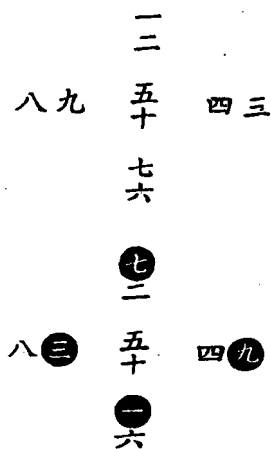 一
二
八九 五十 四三
七
六
七
二
八三 五十 四九
一
六